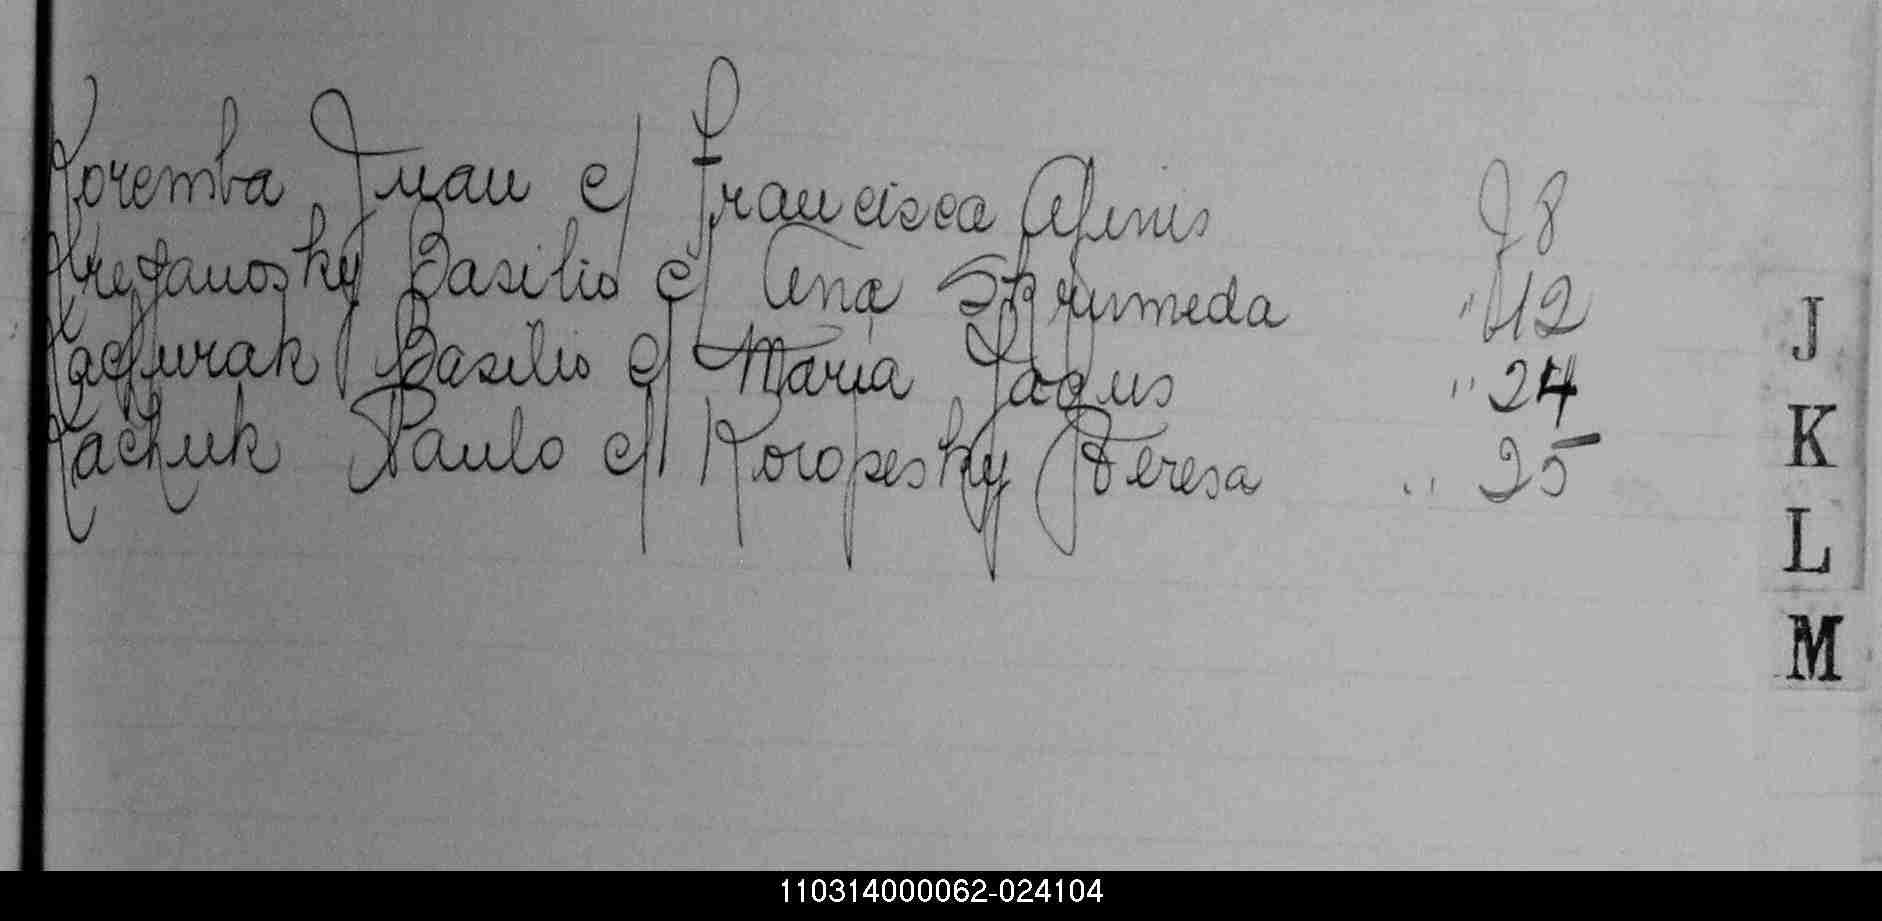 Koremba Juan c/ Francisca Afinis 28
Krefanosky Basilio c/ Ana Skrumeda " 12
Kachurak Basilio c/ Maria Jagus " 24
Kachuk Paulo c/ Koropesky Teresa " 25
J
K
L
M
110314000062-024104